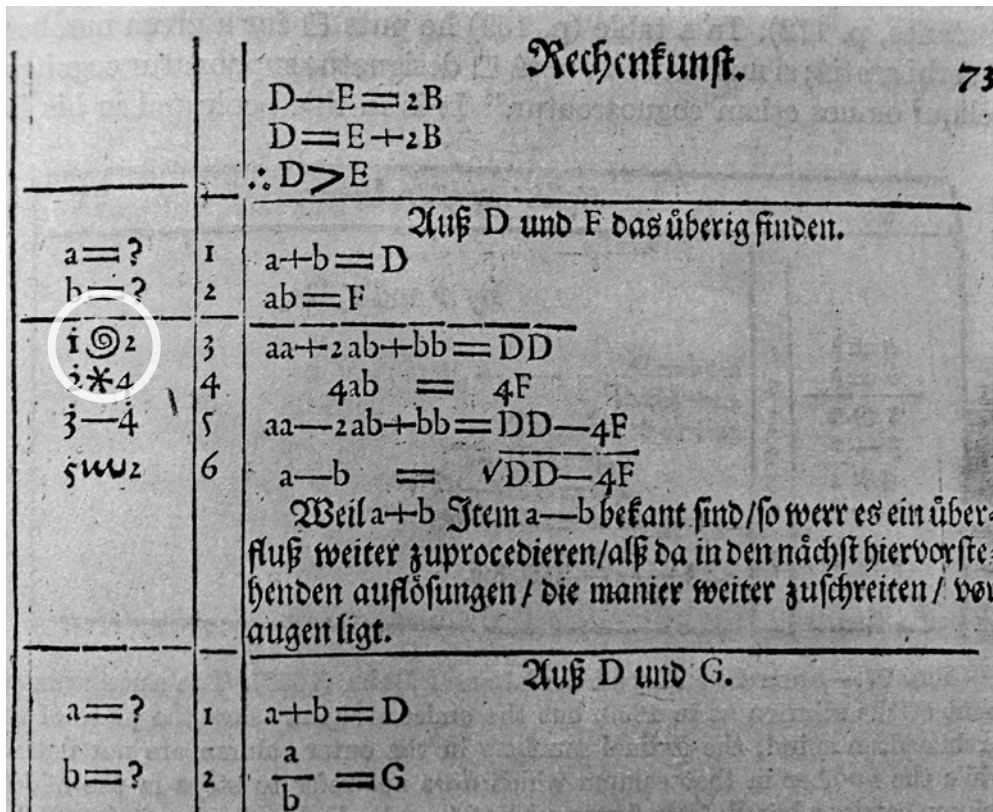 Rechenkunst. 73
D—E=2B
D=E+2B
∴D>E
Auß D und F das überig finden.
a=? 1 a+b=D
b=? 2 ab=F
1 @ 2 3 aa+2ab+bb=DD
2*4 4 4ab = 4F
3—4 5 aa—2ab+bb=DD—4F
5 ω 2 6 a—b = √DD—4F
Weil a+b Item a—b bekant sind/so werr es ein über=
fluß weiter zuprocedieren/alß da in den nächst hiervorste=
henden auflösungen/ die manier weiter zuschreiten/ vor
augen ligt.
Auß D und G.
a=? 1 a+b=D
b=? 2 a/b =G